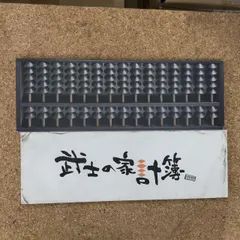 武士の家計簿